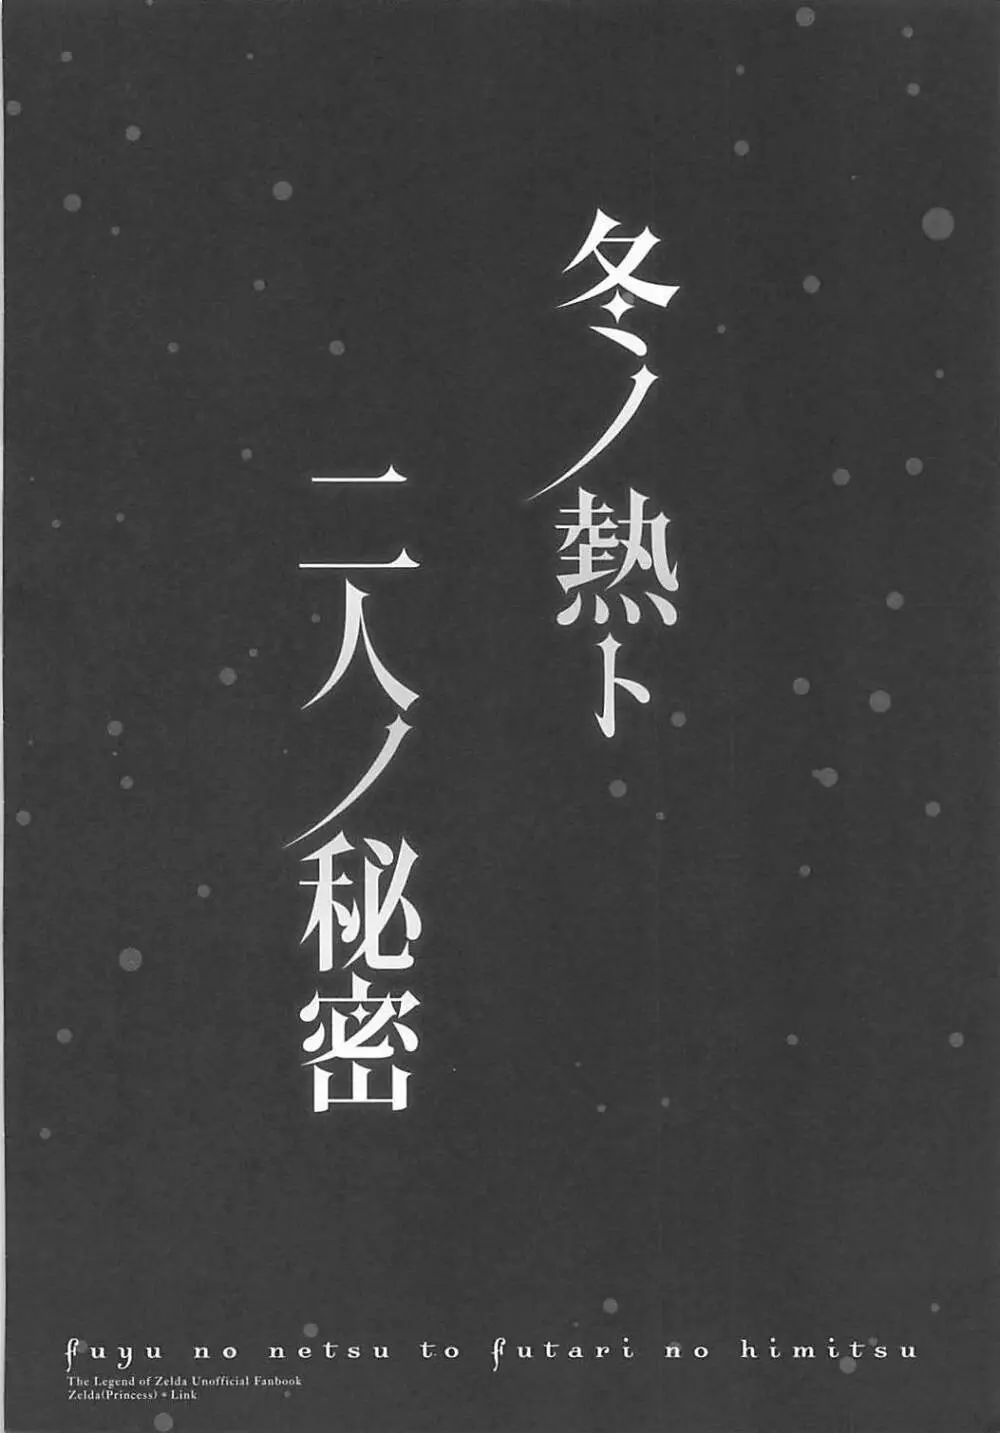 冬ノ熱ト
二人ノ秘密
fuyu no netsu to futari no himitsu
The Legend of Zelda Unofficial Fanbook
Zelda(Princess)*Link